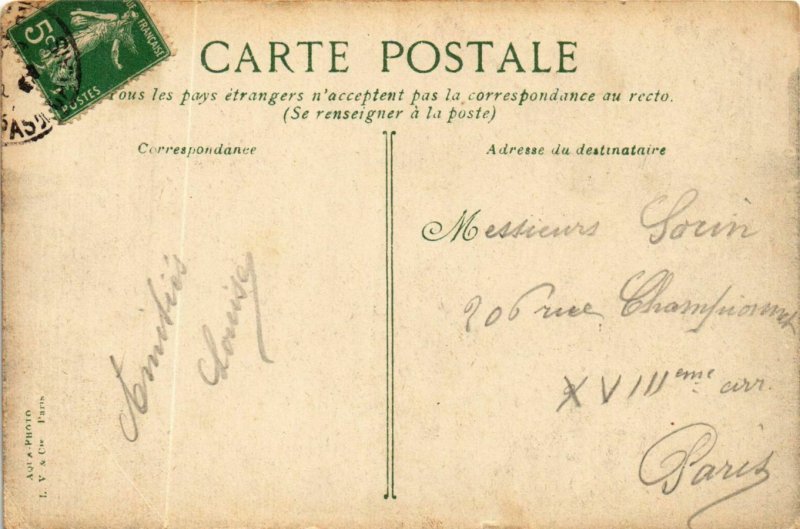 5c
FRANÇAISE
POSTES
CARTE POSTALE
Tous les pays étrangers n'acceptent pas la correspondance au recto.
(Se renseigner à la poste)
Correspondance
Amitiés
Louise
AQUA-PHOTO
L. V. & Cie Paris
Adresse du destinataire
Messieurs Sorin
206 rue Championnet
XVIIIeme arr.
Paris